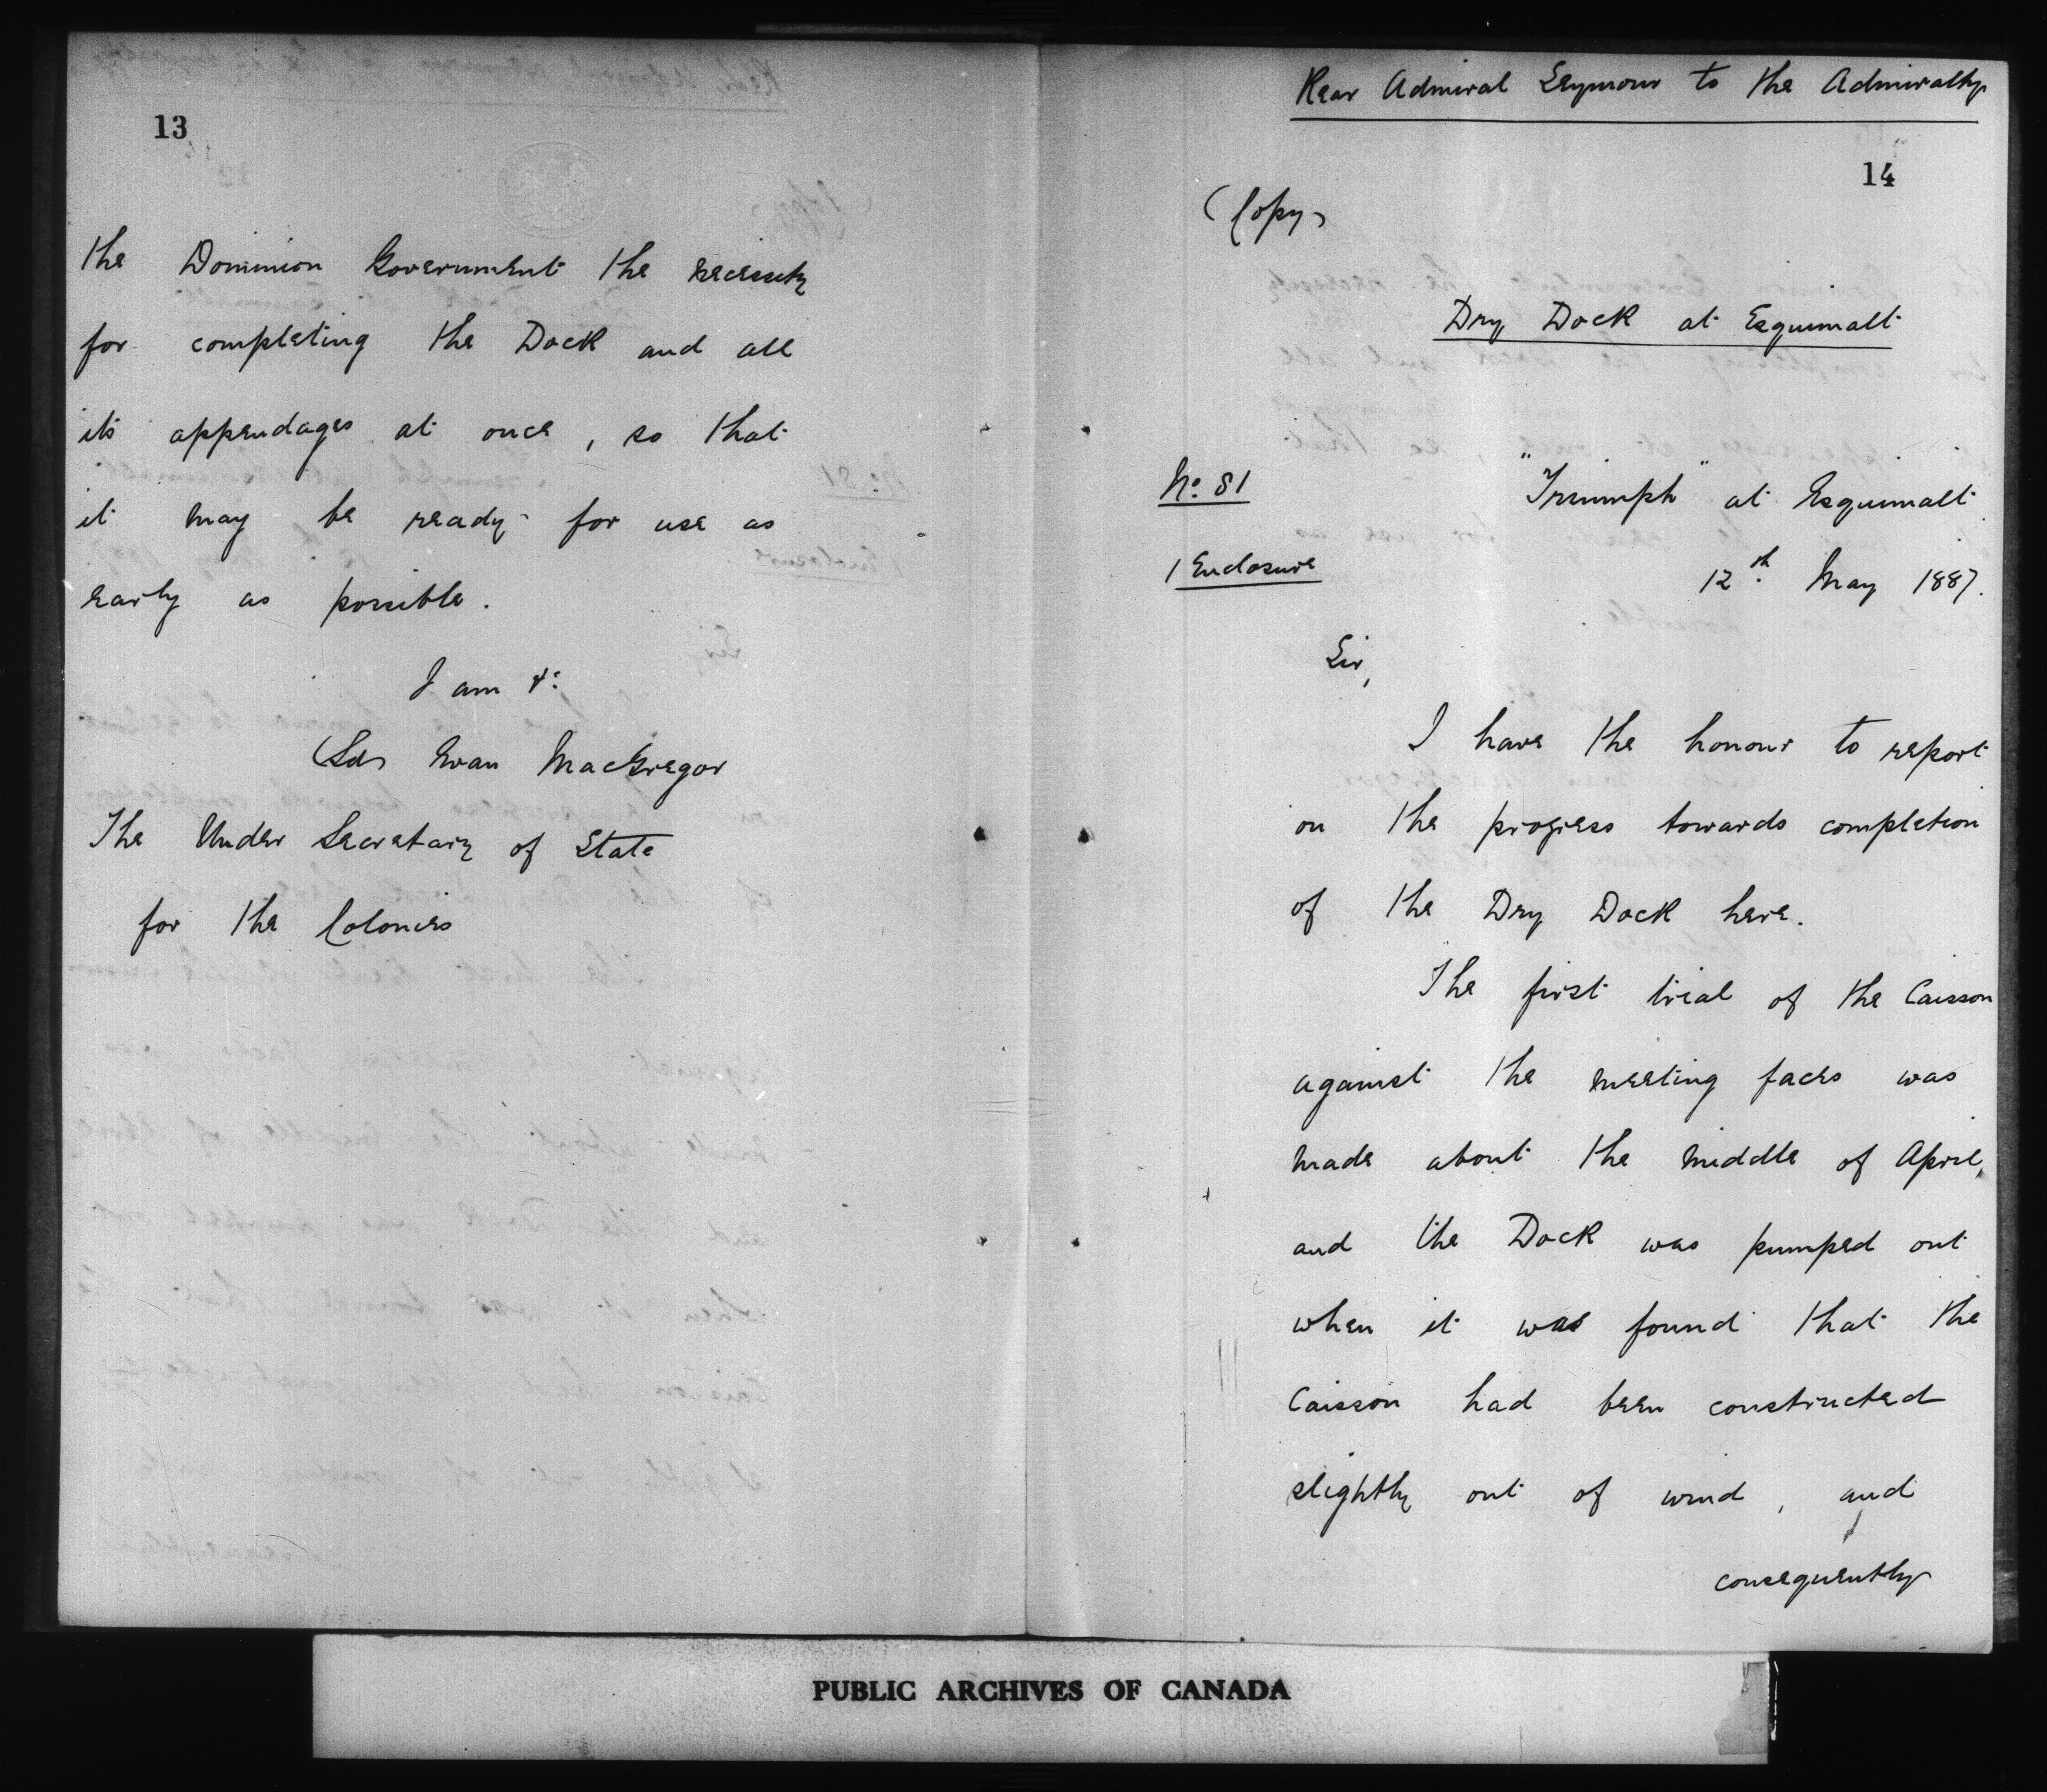 13
the Dominion Government the necessity
for completing the Dock and all
its appendages at once, so that
it may be ready for use as
early as possible.
I am &c
(Sd) Evan MacGregor
The Under Secretary of State
for the Colonies
Rear Admiral Seymour to the Admiralty
14
(Copy)
Dry Dock at Esquimalt
No. 81
"Triumph" at Esquimalt
1 Enclosure
12th May 1887.
Sir,
I have the honour to report
on the progress towards completion
of the Dry Dock here.
The first trial of the Caisson
against the meeting faces was
made about the middle of April,
and the Dock was pumped out
when it was found that the
Caisson had been constructed
slightly out of wind, and
consequently
PUBLIC ARCHIVES OF CANADA